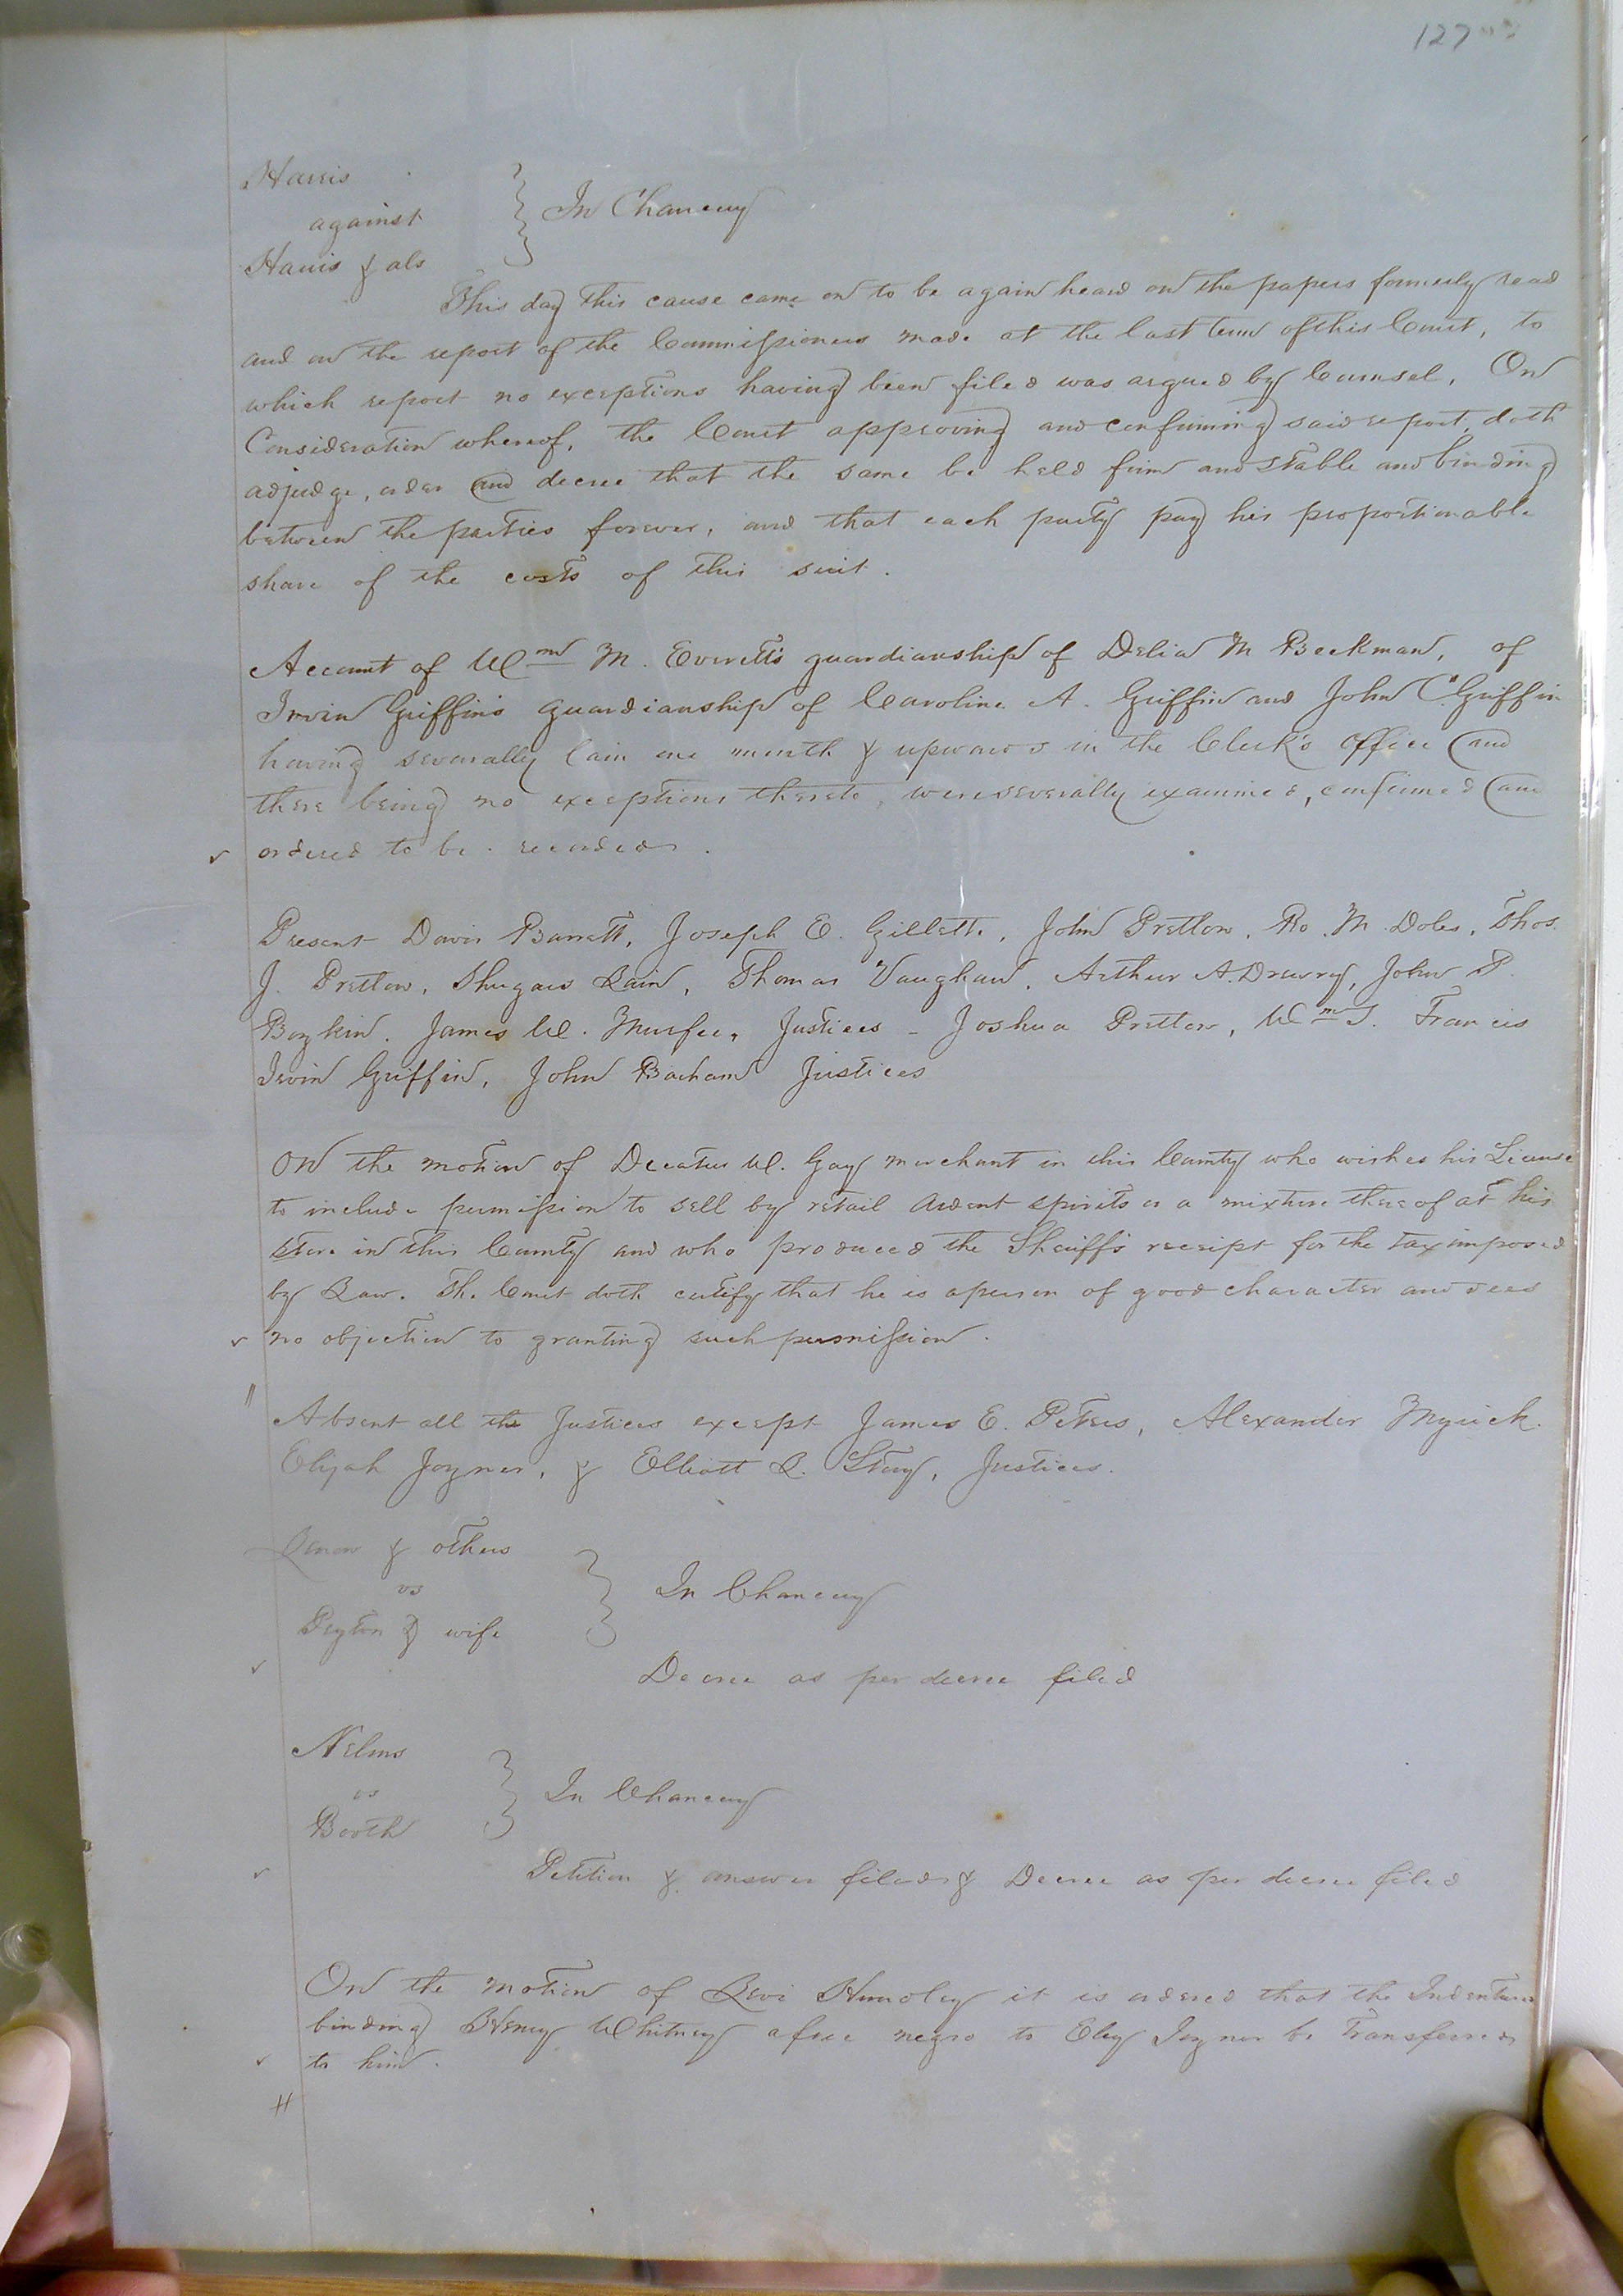 127
Harris
against
Harris & als
} In Chancery
This day this cause came on to be again heard on the papers formerly read
and on the report of the Commissioners made at the last term of this Court, to
which report no exceptions having been filed was argued by Counsel. On
Consideration whereof, the Court approving and confirming said report, doth
adjudge, order and decree that the same be held firm and stable and binding
between the parties forever, and that each party pay his proportionable
share of the costs of this suit.
Account of Wm M. Everett's guardianship of Delia M Beckman, of
Irvin Griffin's guardianship of Caroline A. Griffin and John C. Griffin
having severally lain one month & upwards in the Clerk's office and
there being no exceptions thereto, were severally examined, confirmed and
ordered to be recorded.
Present Davis Barrett, Joseph E. Gillette, John Pretlow, Ro. M Doles, Thos.
J. Pretlow, Shugars Lain, Thomas Vaughan, Arthur A. Drewry, John P.
Boykin, James W. Murfee, Justices - Joshua Pretlow, Wm S. Francis
Irvin Griffin, John Barham Justices
On the motion of Decatur W. Gay merchant in this County who wishes his License
to include permission to sell by retail ardent spirits or a mixture thereof at his
store in this County and who produced the Sheriff's receipt for the tax imposed
by Law. The Court doth certify that he is a person of good character and sees
no objection to granting such permission.
Absent all the Justices except James E. Peters, Alexander Myrick
Elijah Joyner, & Elliott L. Story, Justices.
& others
vs
Peyton & wife
} In Chancery
Decree as per decree filed
Nelms
vs
Booth
} In Chancery
Petition & answer filed & Decree as per decree filed
On the motion of Levi it is ordered that the Indenture
binding Henry Whitney a free negro to Eley Joyner be Transferred
to him.